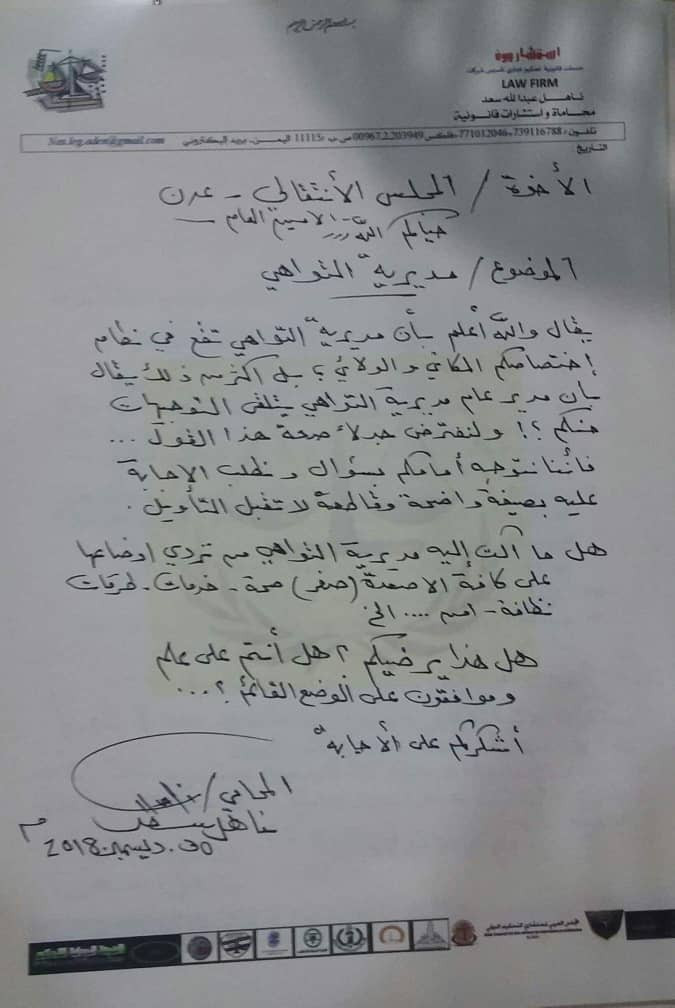 بسم الله الرحمن الرحيم
استشاريون
خدمات قانونية تحكيم تجاري تأسيس شركات
LAW FIRM
ناهل عبدالله سعد
محاماة واستشارات قانونية
تلفون: 739116788 - 771012046 فاكس 00967.2.203949 ص.ب: 11115 اليمن - بريد إليكتروني Nas.leg.aden@gmail.com
التاريخ
الأخوة / المجلس الأنتقالي - عدن
حياكم الله - الامين العام
الموضوع / مديرية التواهي
يقال والله أعلم بأن مديرية التواهي تقع في نظام
إختصاصكم المكاني والولائي؟ بل اكثر من ذلك يقال
بأن مدير عام مديرية التواهي يتلقى التوجيهات
منكم؟! ولنفترض جدلاً صحة هذا القول ...
فأننا نتوجه أمامكم بسؤال ونطلب الإجابة
عليه بصيغة واضحة وقاطعة لا تقبل التأويل.
هل ما آلت إليه مديرية التواهي من تردي اوضاعها
على كافة الاصعدة (صفر) صحة - خدمات - طرقات
نظافة - امن .... الخ
هل هذا يرضيكم؟ هل أنتم على علم
وموافقون على الوضع القائم؟ ...
أشكركم على الأجابة
المحامي /
ناهل سعد
30. ديسمبر 2018 م